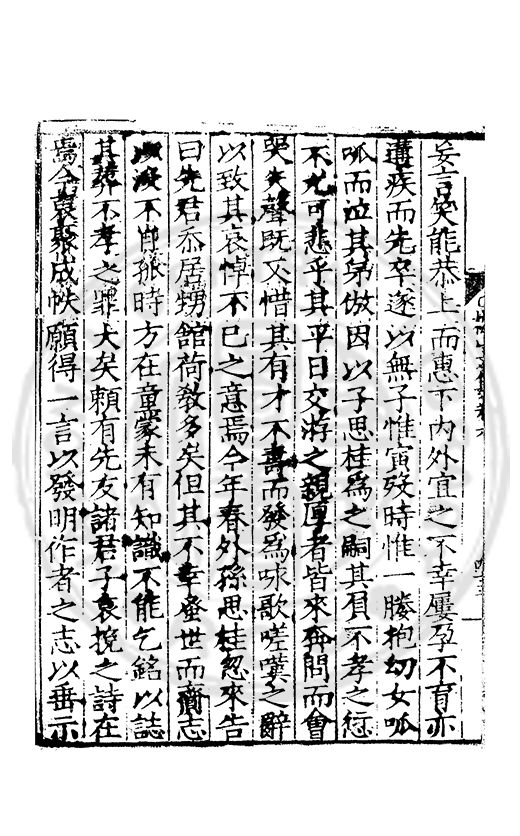 妄言笑能恭上而惠下內外宜之不幸屢孕不育亦
遘疾而先卒遂以無子惟寅歿時惟一媵抱幼女呱
呱而泣其弟倣因以子思桂爲之嗣其負不孝之愆
不尤可悲乎其平日交游之親厚者皆來弔問而會
哭失聲旣又惜其有才不壽而發爲咏歌嗟嘆之辭
以致其哀悼不已之意焉今年春外孫思桂忽來告
曰先君忝居甥館荷敎多矣但其不幸蚤世而齎志
以沒不肖孤時方在童蒙未有知識不能乞銘以誌
其葬不孝之罪大矣頼有先友諸君子哀挽之詩在
焉今裒聚成帙願得一言以發明作者之志以垂示